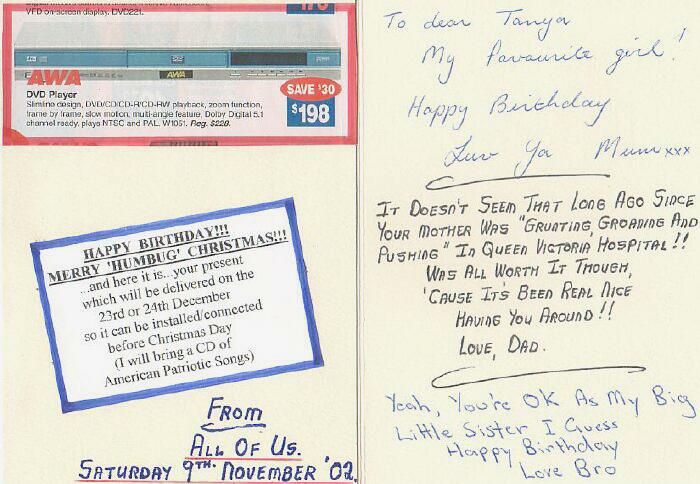 VFD on-screen display. DVD221.
AWA
AWA
DVD Player
Slimline design, DVD/CD/CD-R/CD-RW playback, zoom function,
frame by frame, slow motion, multi-angle feature, Dolby Digital 5.1
channel ready, plays NTSC and PAL. W1051. Reg. $228.
SAVE $30
$198
HAPPY BIRTHDAY!!!
MERRY 'HUMBUG' CHRISTMAS!!!
...and here it is...your present
which will be delivered on the
23rd or 24th December
so it can be installed/connected
before Christmas Day
(I will bring a CD of
American Patriotic Songs)
FROM
ALL OF US.
SATURDAY 9TH. NOVEMBER '02.
To dear Tanya
My favourite girl!
Happy Birthday
Luv Ya Mum xxx
IT DOESN'T SEEM THAT LONG AGO SINCE
YOUR MOTHER WAS "GRUNTING, GROANING AND
PUSHING" IN QUEEN VICTORIA HOSPITAL!!
WAS ALL WORTH IT THOUGH,
'CAUSE IT'S BEEN REAL NICE
HAVING YOU AROUND!!
LOVE, DAD.
Yeah, You're OK As My Big
Little Sister I Guess
Happy Birthday
Love Bro